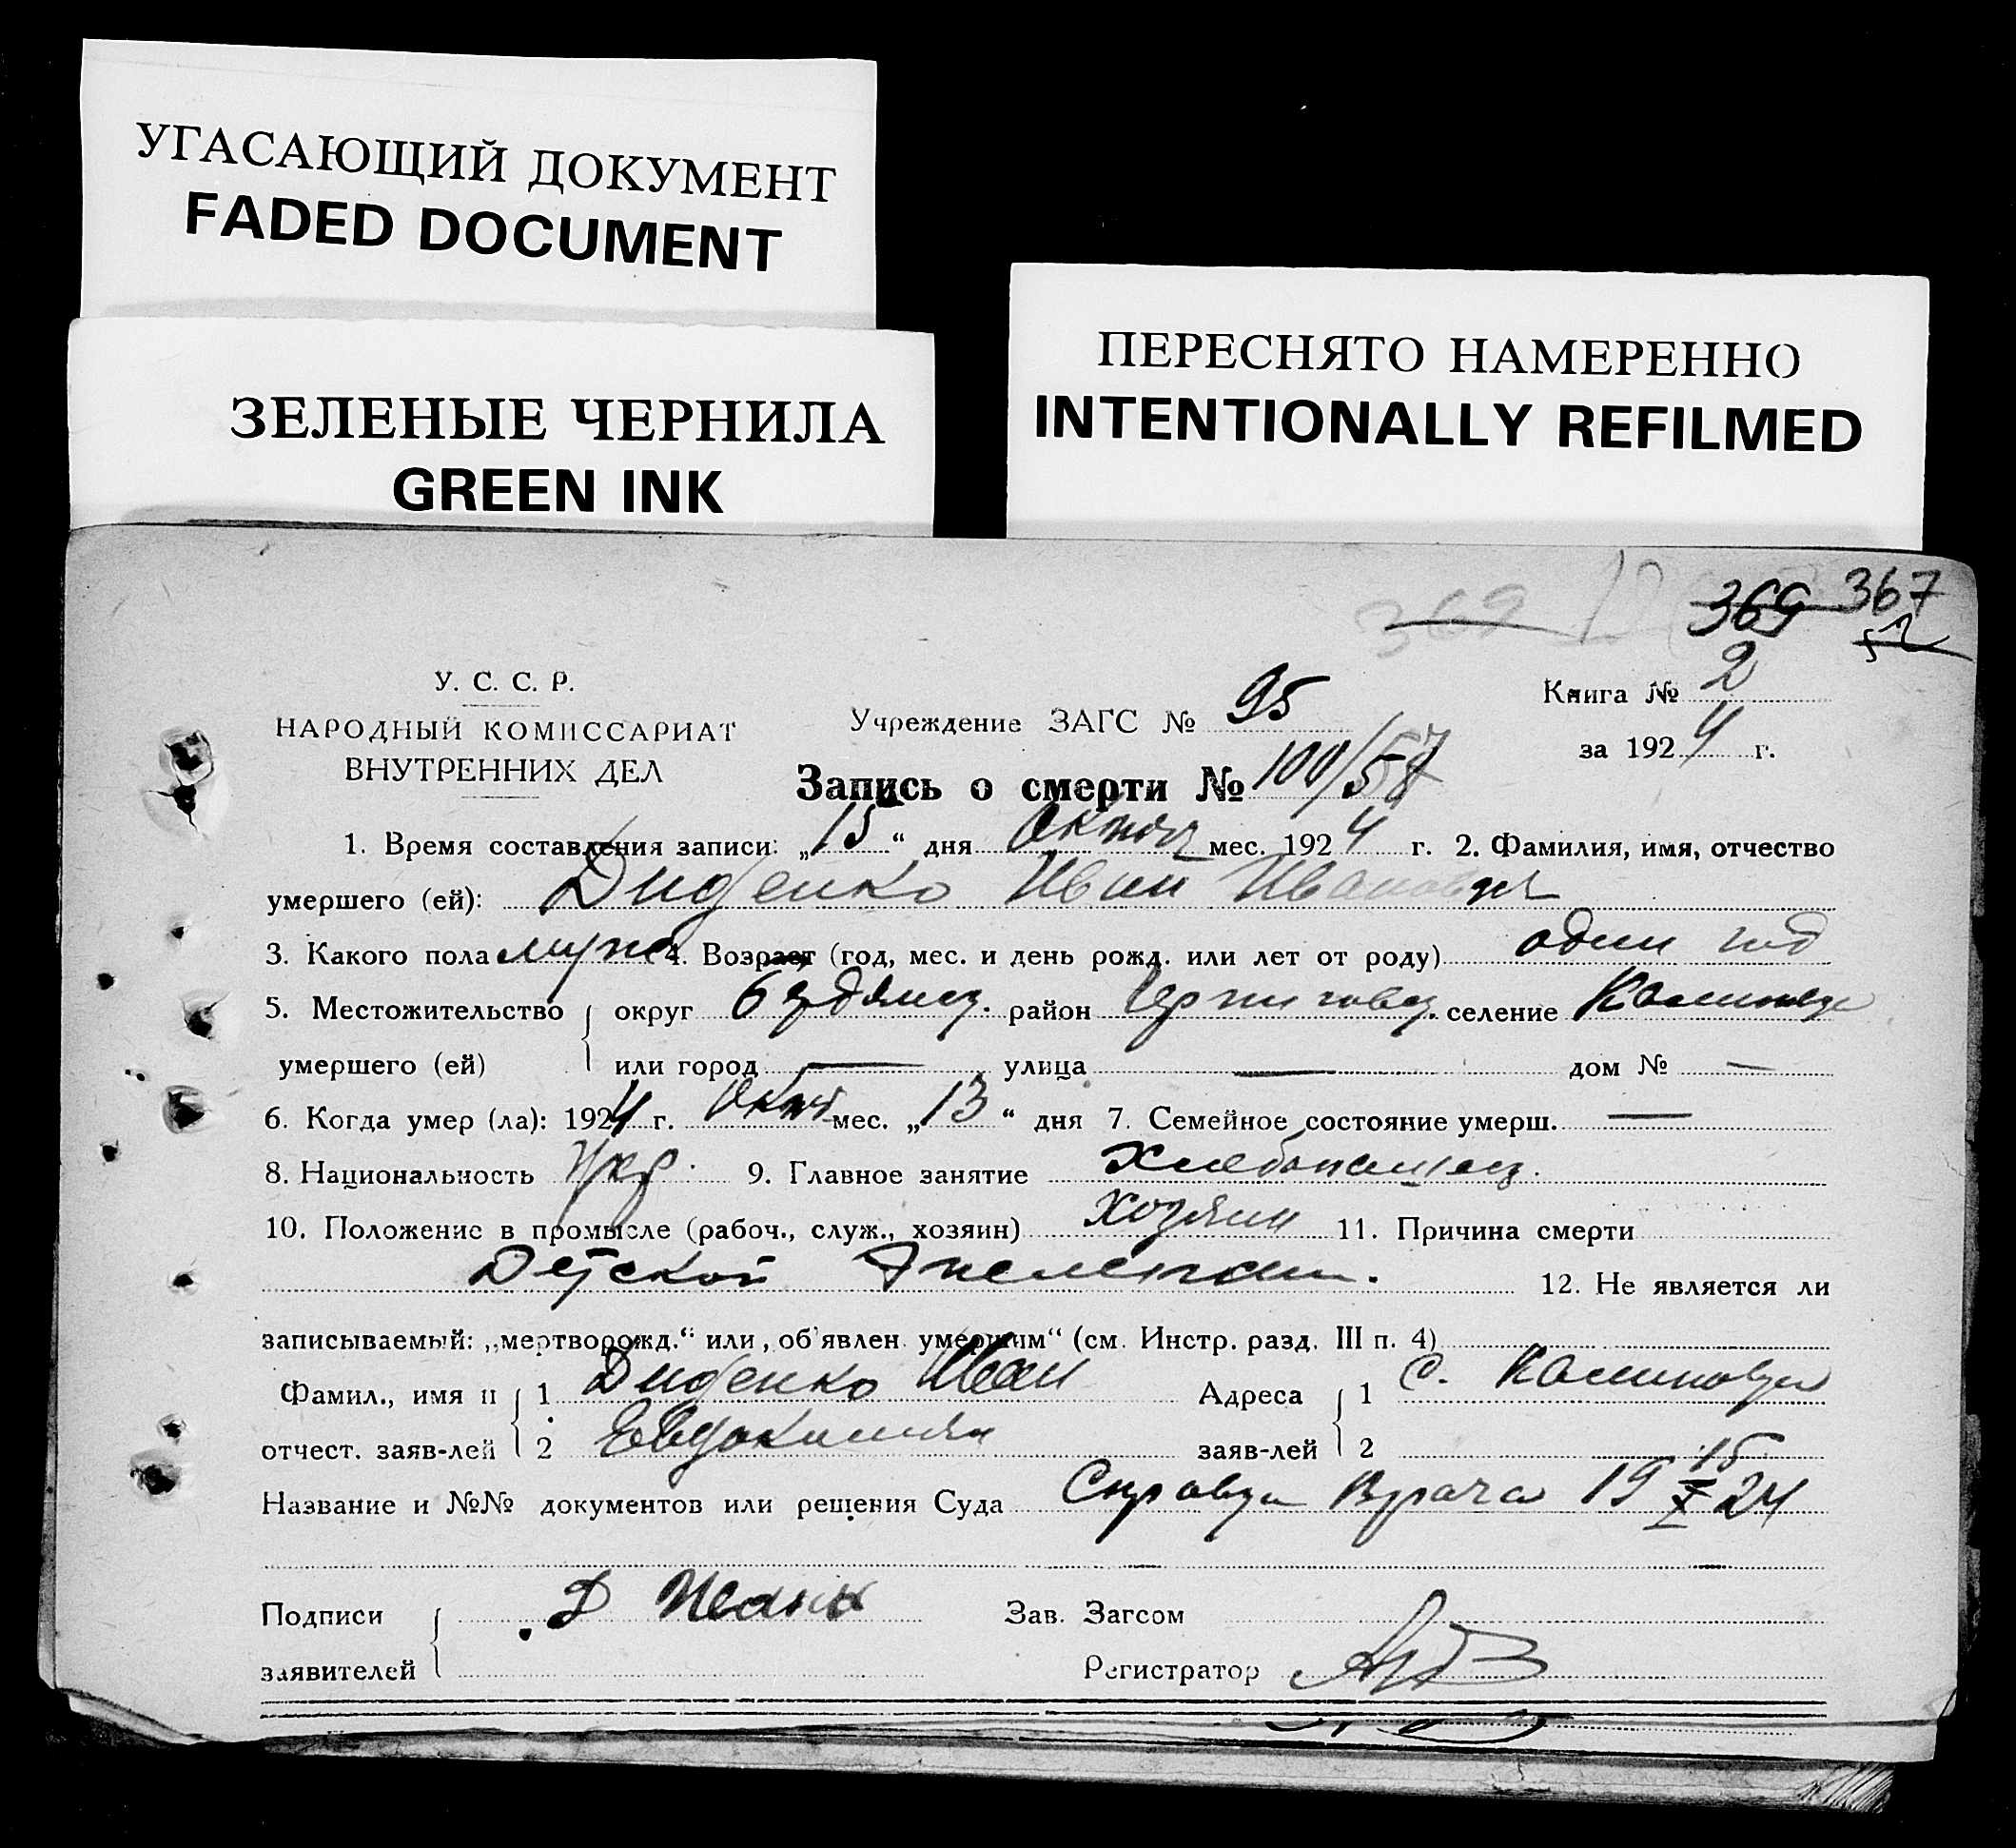 УГАСАЮЩИЙ ДОКУМЕНТ
FADED DOCUMENT
ЗЕЛЕНЫЕ ЧЕРНИЛА
GREEN INK
ПЕРЕСНЯТО НАМЕРЕННО
INTENTIONALLY REFILMED
369 369 367
52
У. С. С. Р.
НАРОДНЫЙ КОМИССАРИАТ
ВНУТРЕННИХ ДЕЛ
Учреждение ЗАГС № 95
Книга № 2
за 1924 г.
Запись о смерти № 100/57
1. Время составления записи: „15“ дня Октяб мес. 1924 г. 2. Фамилия, имя, отчество
умершего (ей): Диденко Иван Иванович
3. Какого пола муж 4. Возраст (год, мес. и день рожд. или лет от роду) один год
5. Местожительство округ район селение
умершего (ей) или город — улица — дом № —
6. Когда умер (ла): 1924 г. Окт мес. „13“ дня 7. Семейное состояние умерш. —
8. Национальность Укр. 9. Главное занятие Хлебопашец.
10. Положение в промысле (рабоч., служ., хозяин) Хозяин 11. Причина смерти
Детской 12. Не является ли
записываемый: „мертворожд.“ или „об'явлен умершим“ (см. Инстр. разд. III п. 4)
Фамил., имя и 1 Диденко Иван Адреса 1 с.
отчест. заяв-лей 2 заяв-лей 2
Название и №№ документов или решения Суда Справка Врача 19 15/X 24
Подписи Д Иван Зав. Загсом
заявителей Регистратор